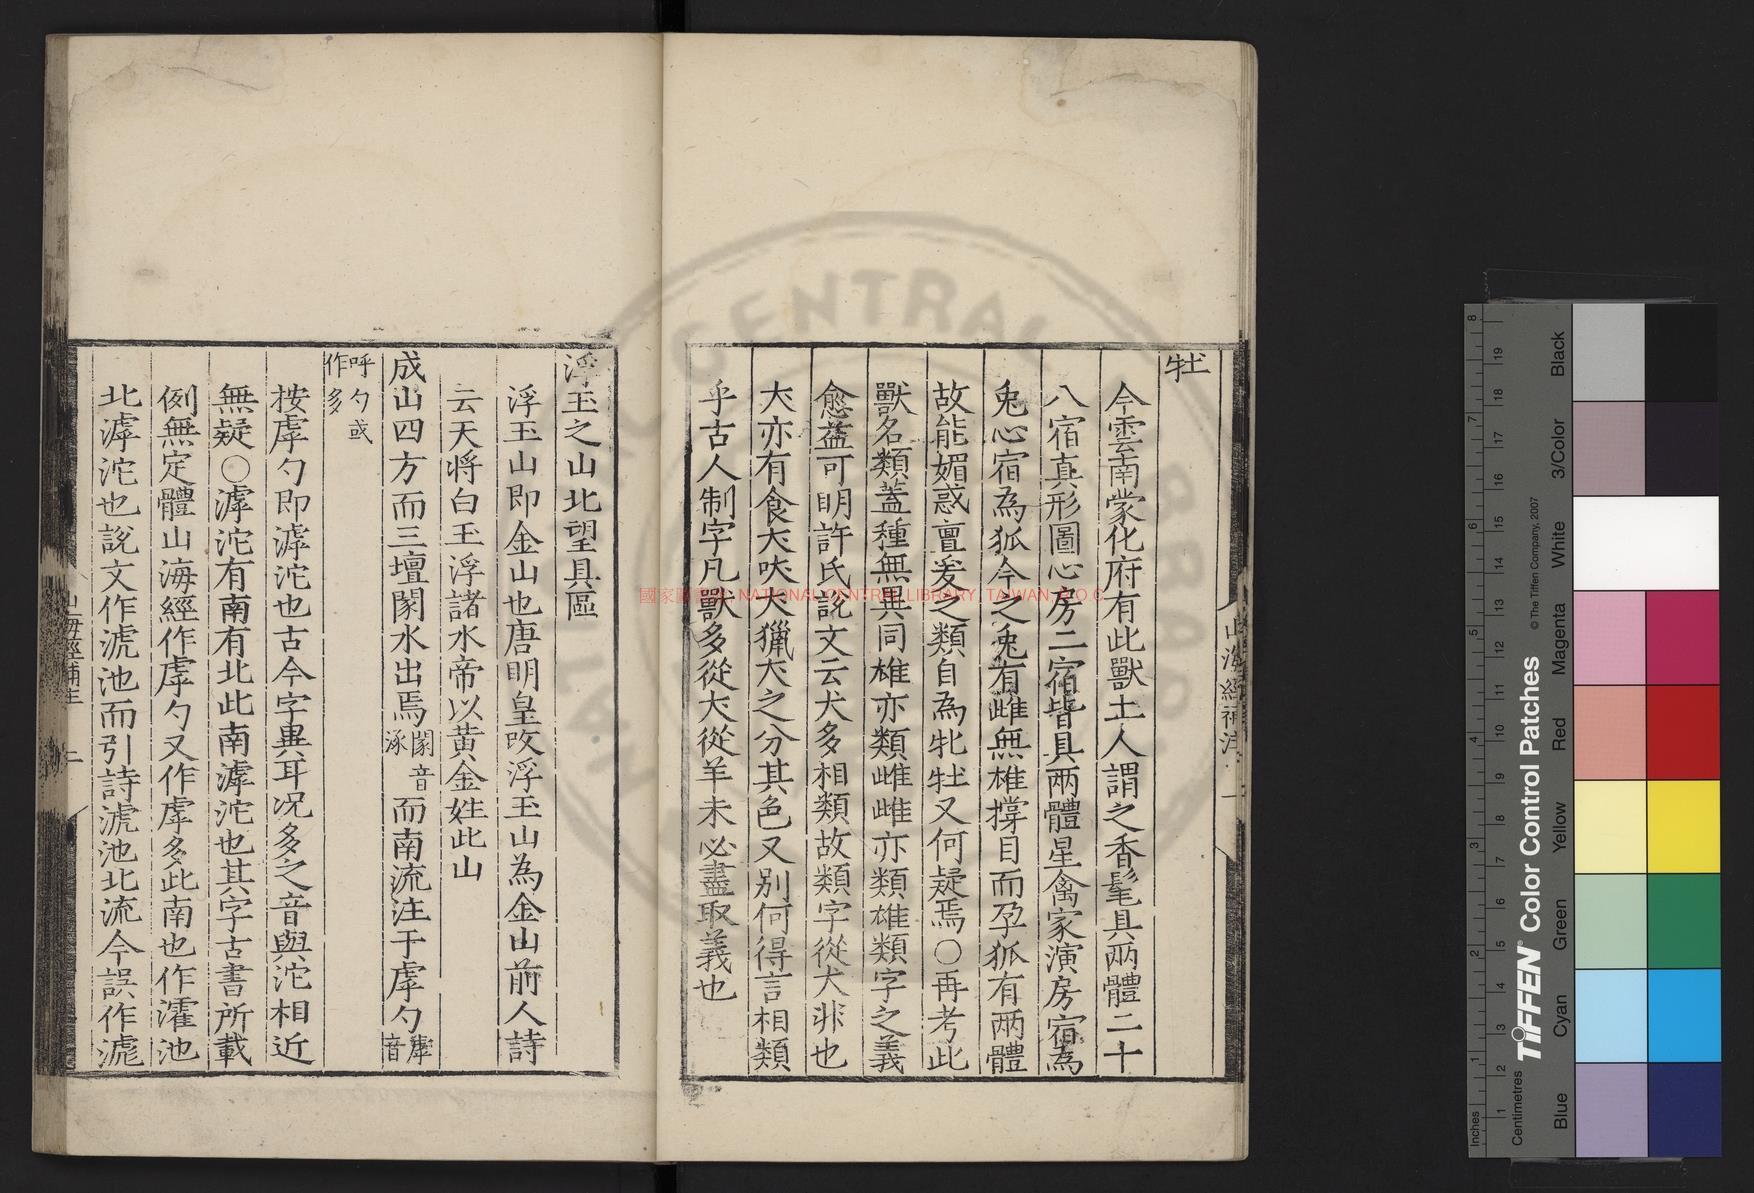 牡
今雲南蒙化府有此獸土人謂之香髦具兩體二十
八宿真形圖心房二宿皆具兩體星禽家演房宿為
兎心宿為狐今之兎有雌無雄撐目而孕狐有兩體
故能媚惑亶爰之類自為牝牡又何疑焉〇再考此
獸名類蓋種無異同雄亦類雌雌亦類雄類字之義
愈益可明許氏說文云犬多相類故類字從犬非也
犬亦有食犬吠犬獵犬之分其色又別何得言相類
乎古人制字凡獸多從犬從羊未必盡取義也
山海經補注 一
浮玉之山北望具區
浮玉山即金山也唐明皇改浮玉山為金山前人詩
云天將白玉浮諸水帝以黃金姓此山
成山四方而三壇閡水出焉閡音涿而南流注于虖勺虖音
呼勺或作多
按虖勺即滹沱也古今字異耳况多之音與沱相近
無疑〇滹沱有南有北此南滹沱也其字古書所載
例無定體山海經作虖勺又作虖多此南也作㶁池
北滹沱也說文作滮池而引詩滮池北流今誤作滮
山海經補注 二
國家圖書館, NATIONAL CENTRAL LIBRARY, TAIWAN, R.O.C
NATIONAL CENTRAL LIBRARY
TIFFEN Color Control Patches
© The Tiffen Company, 2007
Inches
Centimetres
Blue
Cyan
Green
Yellow
Red
Magenta
White
3/Color
Black